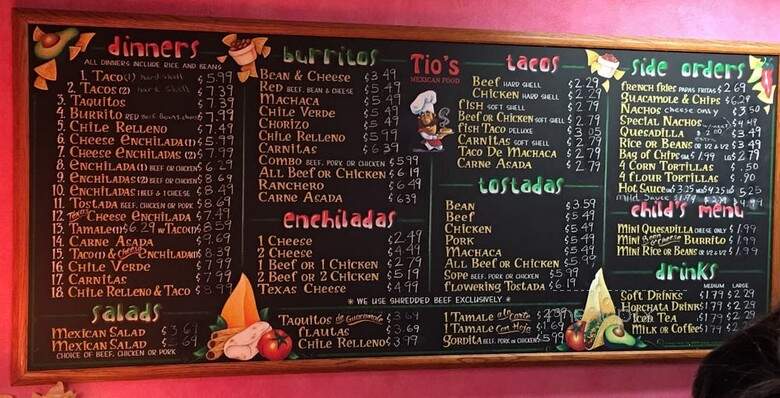 dinners
ALL DINNERS INCLUDE RICE AND BEANS
1. TACO(1) hard shell $5.99
2. TACOS (2) hard shell $7.39
3. TAQUITOS $7.39
4. BURRITO RED $7.99
5. CHILE RELLENO $7.49
6. CHEESE ENCHILADA(1) $5.99
7. CHEESE ENCHILADAS (2) $7.99
8. ENCHILADA(1) BEEF OR CHICKEN $6.29
9. ENCHILADAS(2) BEEF OR CHICKEN $8.69
10. ENCHILADAS 1 BEEF & 1 CHEESE $8.49
11. TOSTADA BEEF, CHICKEN OR PORK $8.69
12. Texas CHEESE ENCHILADA $7.49
13. TAMALE(1) $6.29 w TACO(1) $8.59
14. CARNE ASADA $9.69
15. TACO(1) & cheese ENCHILADA(1) $8.39
16. CHILE VERDE $7.99
17. CARNITAS $7.99
18 CHILE RELLENO & TACO $8.99
salads
MEXICAN SALAD $3.69
MEXICAN SALAD $ .69
CHOICE OF BEEF, CHICKEN OR PORK
burritos
BEAN & CHEESE $3.49
RED BEEF, BEAN & CHEESE $5.49
MACHACA $5.49
CHILE VERDE $5.49
CHORIZO $5.49
CHILE RELLENO $5.99
CARNITAS $6.39
COMBO BEEF, PORK OR CHICKEN $5.99
ALL BEEF OR CHICKEN $6.19
RANCHERO $6.49
CARNE ASADA $6.39
enchiladas
1 CHEESE $2.49
2 CHEESE $4.49
1 BEEF OR 1 CHICKEN $2.79
2 BEEF OR 2 CHICKEN $5.19
TEXAS CHEESE $4.99
* WE USE SHREDDED BEEF EXCLUSIVELY *
TAQUITOS de Guacamole $3.69
FLAUTAS $3.69
CHILE RELLENO $3.99
TIO'S
MEXICAN FOOD
tacos
BEEF HARD SHELL $2.29
CHICKEN HARD SHELL $2.79
FISH SOFT SHELL $2.79
BEEF OR CHICKEN SOFT SHELL $2.79
FISH TACO DELUXE $3.05
CARNITAS SOFT SHELL $2.79
TACO DE MACHACA $2.79
CARNE ASADA $2.79
tostadas
BEAN $3.59
BEEF $5.49
CHICKEN $5.49
PORK $5.49
MACHACA $5.49
ALL BEEF OR CHICKEN $5.99
SOPE BEEF, PORK OR CHICKEN $5.99
FLOWERING TOSTADA $6.19
1 TAMALE $2.39
1 TAMALE Con Hoja $1.69
GORDITA BEEF, PORK OR CHICKEN $5.99
side orders
FRENCH FRIES PAPAS FRITAS $2.69
GUACAMOLE & CHIPS $6.29
NACHOS CHEESE ONLY $3.50
SPECIAL NACHOS $4.49
QUESADILLA $3.49
RICE OR BEANS OR 1/2 & 1/2 $3.49
BAG OF CHIPS SM $1.99 LG $2.79
4 CORN TORTILLAS $.50
4 FLOUR TORTILLAS $.90
HOT SAUCE SM $3.25 MED $4.25 LG 5.25
mild Sauce $4.99
child's menu
MINI QUESADILLA CHEESE ONLY $1.99
MINI BURRITO $1.99
MINI RICE OR BEANS OR 1/2 & 1/2 $1.99
drinks
MEDIUM LARGE
SOFT DRINKS $1.79 $2.29
HORCHATA DRINKS $1.79 $2.29
ICED TEA $1.79 $2.29
MILK OR COFFEE $1.79 $2.29